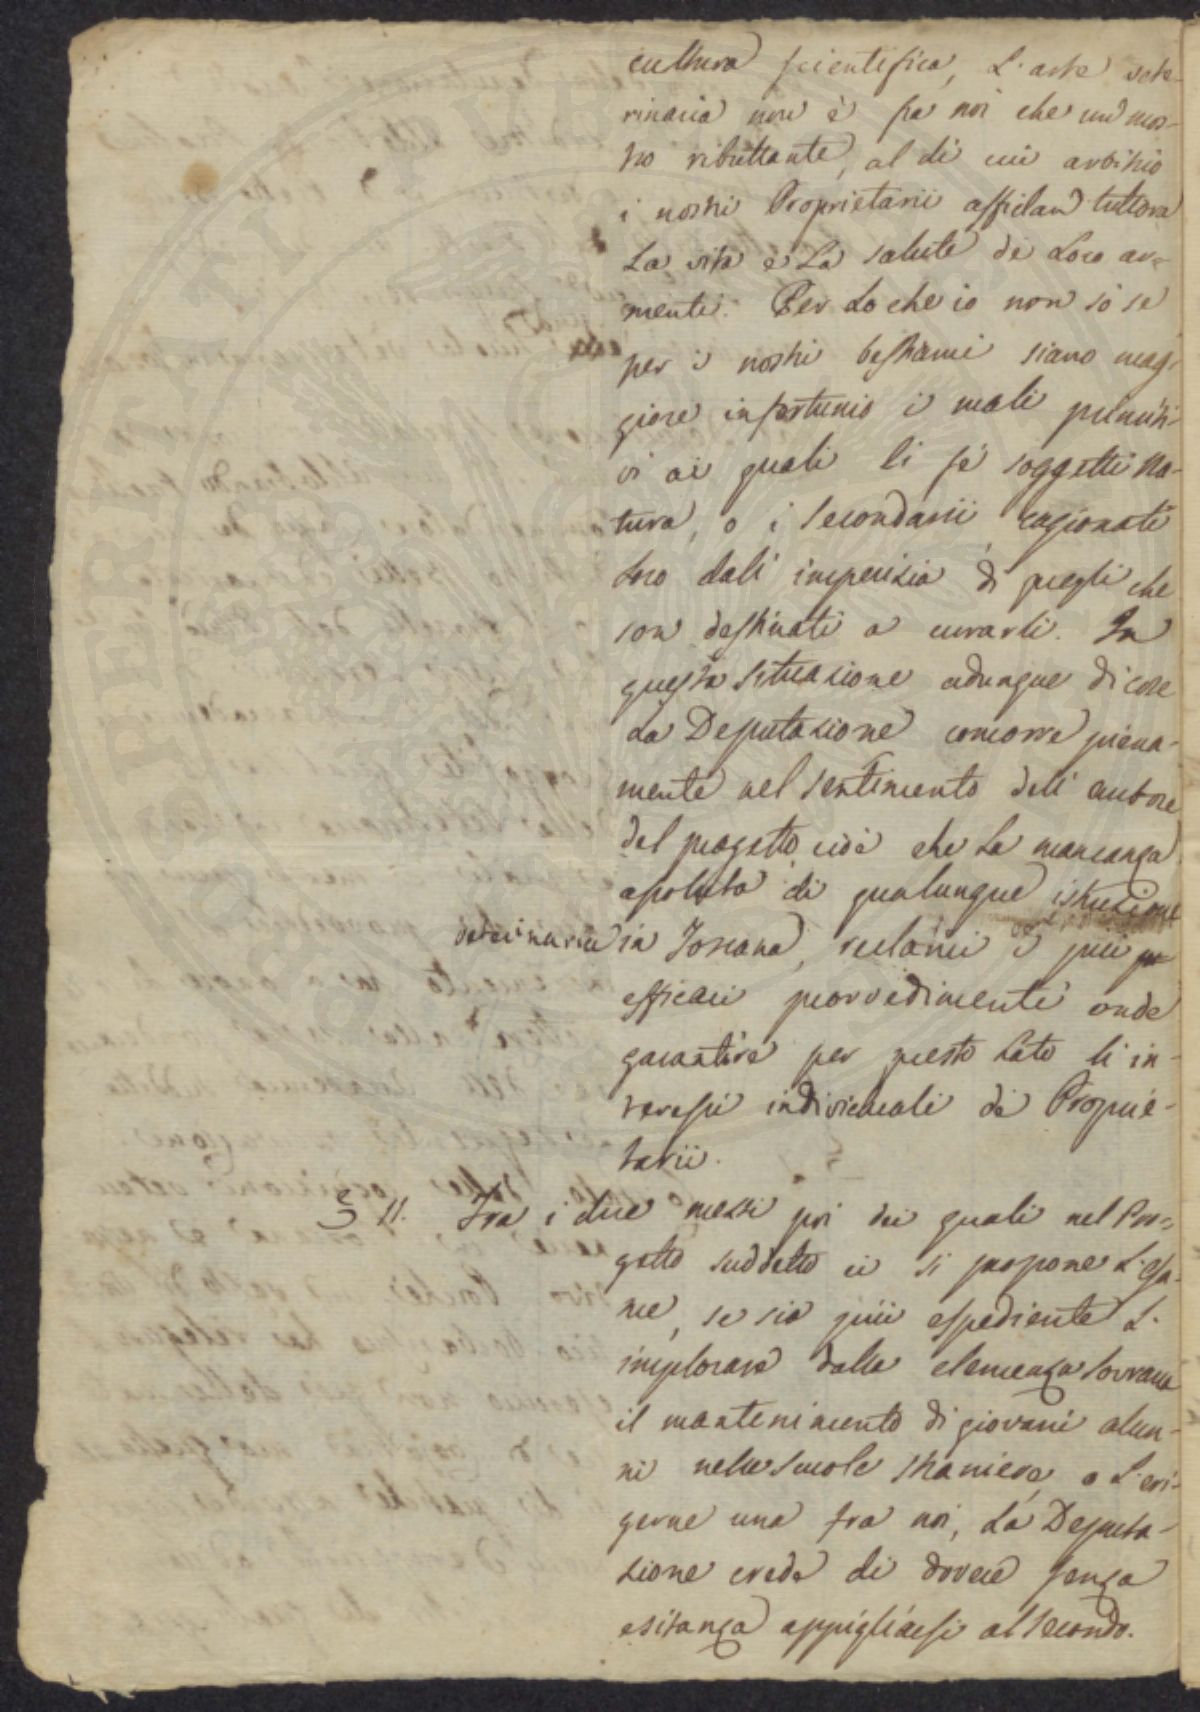 cultura scientifica, L'arte vete-
rinaria non è fra noi che un mos-
tro ributtante, al di cui arbitrio
i nostri Proprietarii affidan tuttora
La vita e La salute de Loro ar-
menti. Per Lo che io non so se
per i nostri bestiami siano mag-
giore infortunio i mali primiti-
vi ai quali li fé soggetti Na-
tura, o i secondarii cagionati
Loro dall'imperizia di quegli che
son destinati a curarli. In
questa situazione adunque di cose
La Deputazione concorre piena-
mente nel sentimento dell'autore
del progetto cioè che La mancanza
assoluta di qualunque istruzione
veterinaria in Toscana, reclami i più
efficaci provvedimenti onde
garantire per questo Lato li in-
teressi individuali de Proprie-
tarii.
§ 11. Fra i due mezzi poi dei quali nel Pro-
getto suddetto ci si propone L'esa-
me, se sia più espediente L'
implorare dalla clemenza Sovrana
il mantenimento di giovani alun-
ni nelle scuole straniere, o L'eri-
gerne una fra noi, La Deputa-
zione crede di dovere senza
esitanza appigliarsi al secondo.